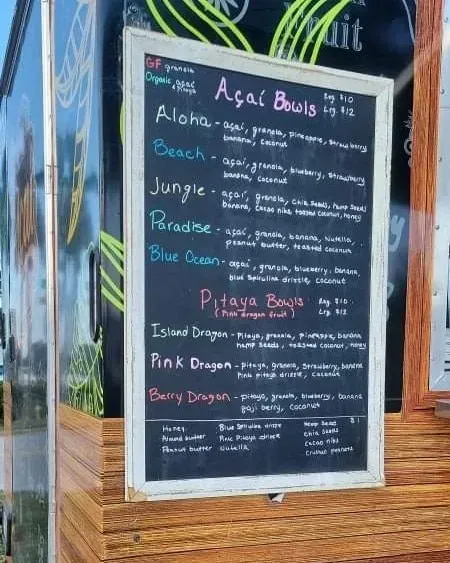 Fruit
GF granola
Organic açaí
& pitaya
Açaí Bowls
Reg. $10
Lrg. $12
Aloha - açaí, granola, pineapple, strawberry
banana, coconut
Beach - açaí, granola, blueberry, strawberry
banana, coconut
Jungle - açaí, granola, chia seeds, hemp seeds
banana, cacao nibs, toasted coconut, honey
Paradise - açaí, granola, banana, nutella,
peanut butter, toasted coconut
Blue Ocean - açaí, granola, blueberry, banana,
blue spirulina drizzle, coconut
Pitaya Bowls
(Pink dragon fruit)
Reg. $10
Lrg. $12
Island Dragon - Pitaya, granola, pineapple, banana
hemp seeds, toasted coconut, honey
Pink Dragon - pitaya, granola, strawberry, banana
Pink pitaya drizzle, coconut
Berry Dragon - pitaya, granola, blueberry, banana
goji berry, coconut
Honey Blue Spirulina drizzle Hemp Seed $1
Almond butter Pink Pitaya drizzle chia seeds
Peanut butter Nutella cacao nibs
crushed peanuts